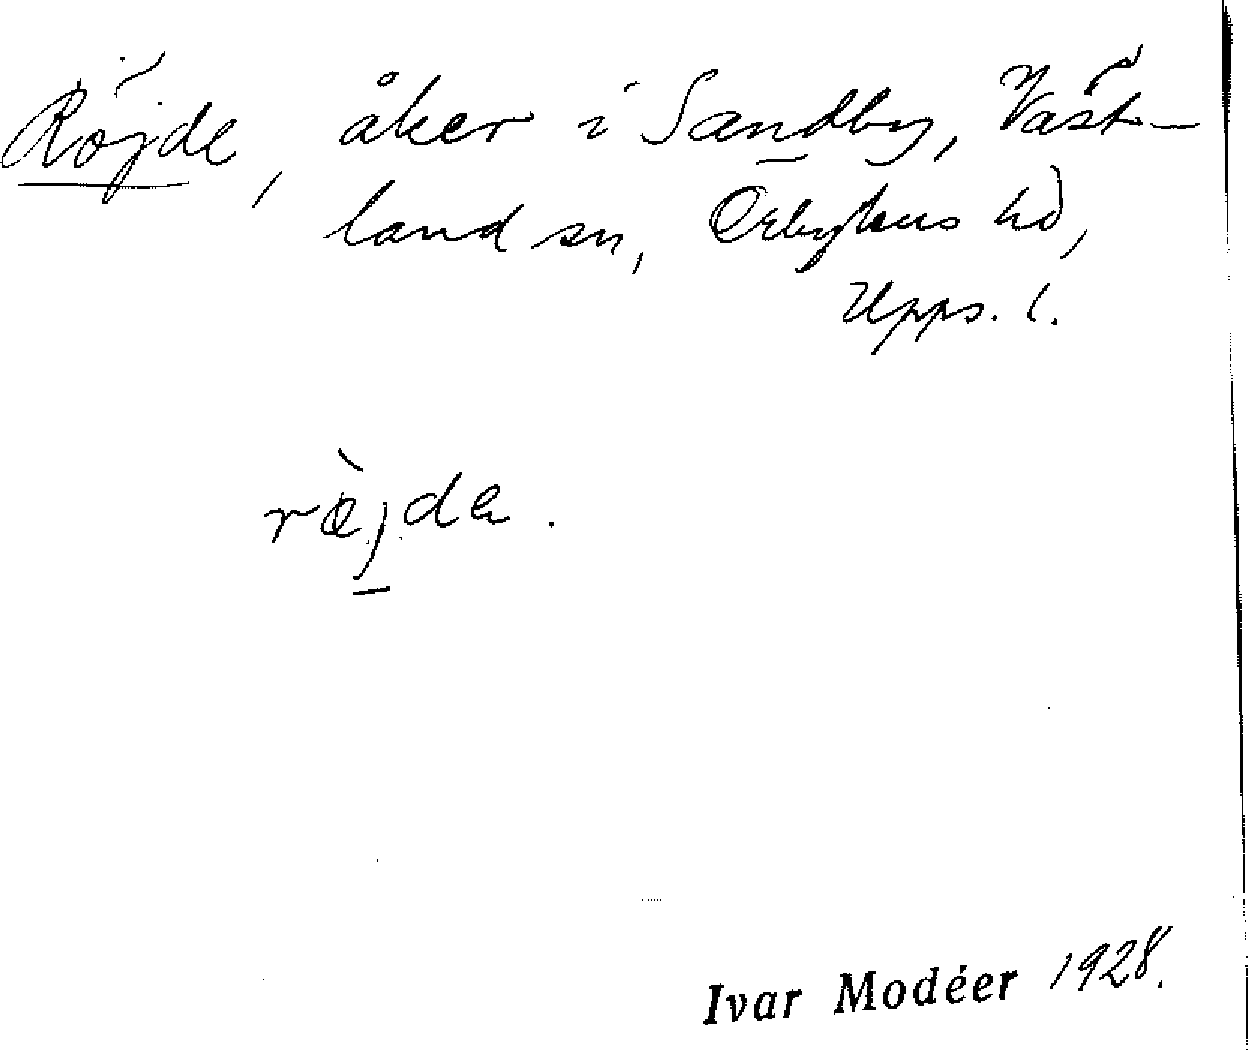 Röjde, åker i Sandby, Väst-
land sn, Örbyhus hd,
Upps. l.
ræ̀jda.
Ivar Modéer 1928.